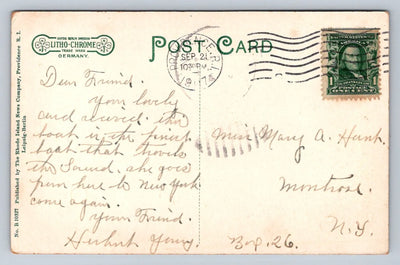 LITHO-CHROME
TRADE MARK
GERMANY.
POST CARD
PROVIDENCE, R.I.
SEP 21
1907
Dear Friend.
your lovely
card received. the
boat is the finest
boat that travels
the Sound. she goes
from here to New York
come again.
your Friend.
Herbert Young
Miss Mary A. Hunt.
Montrose
N.Y.
Box 26.
Published by The Rhode Island News Company, Providence R. I.
Leipzig-Berlin